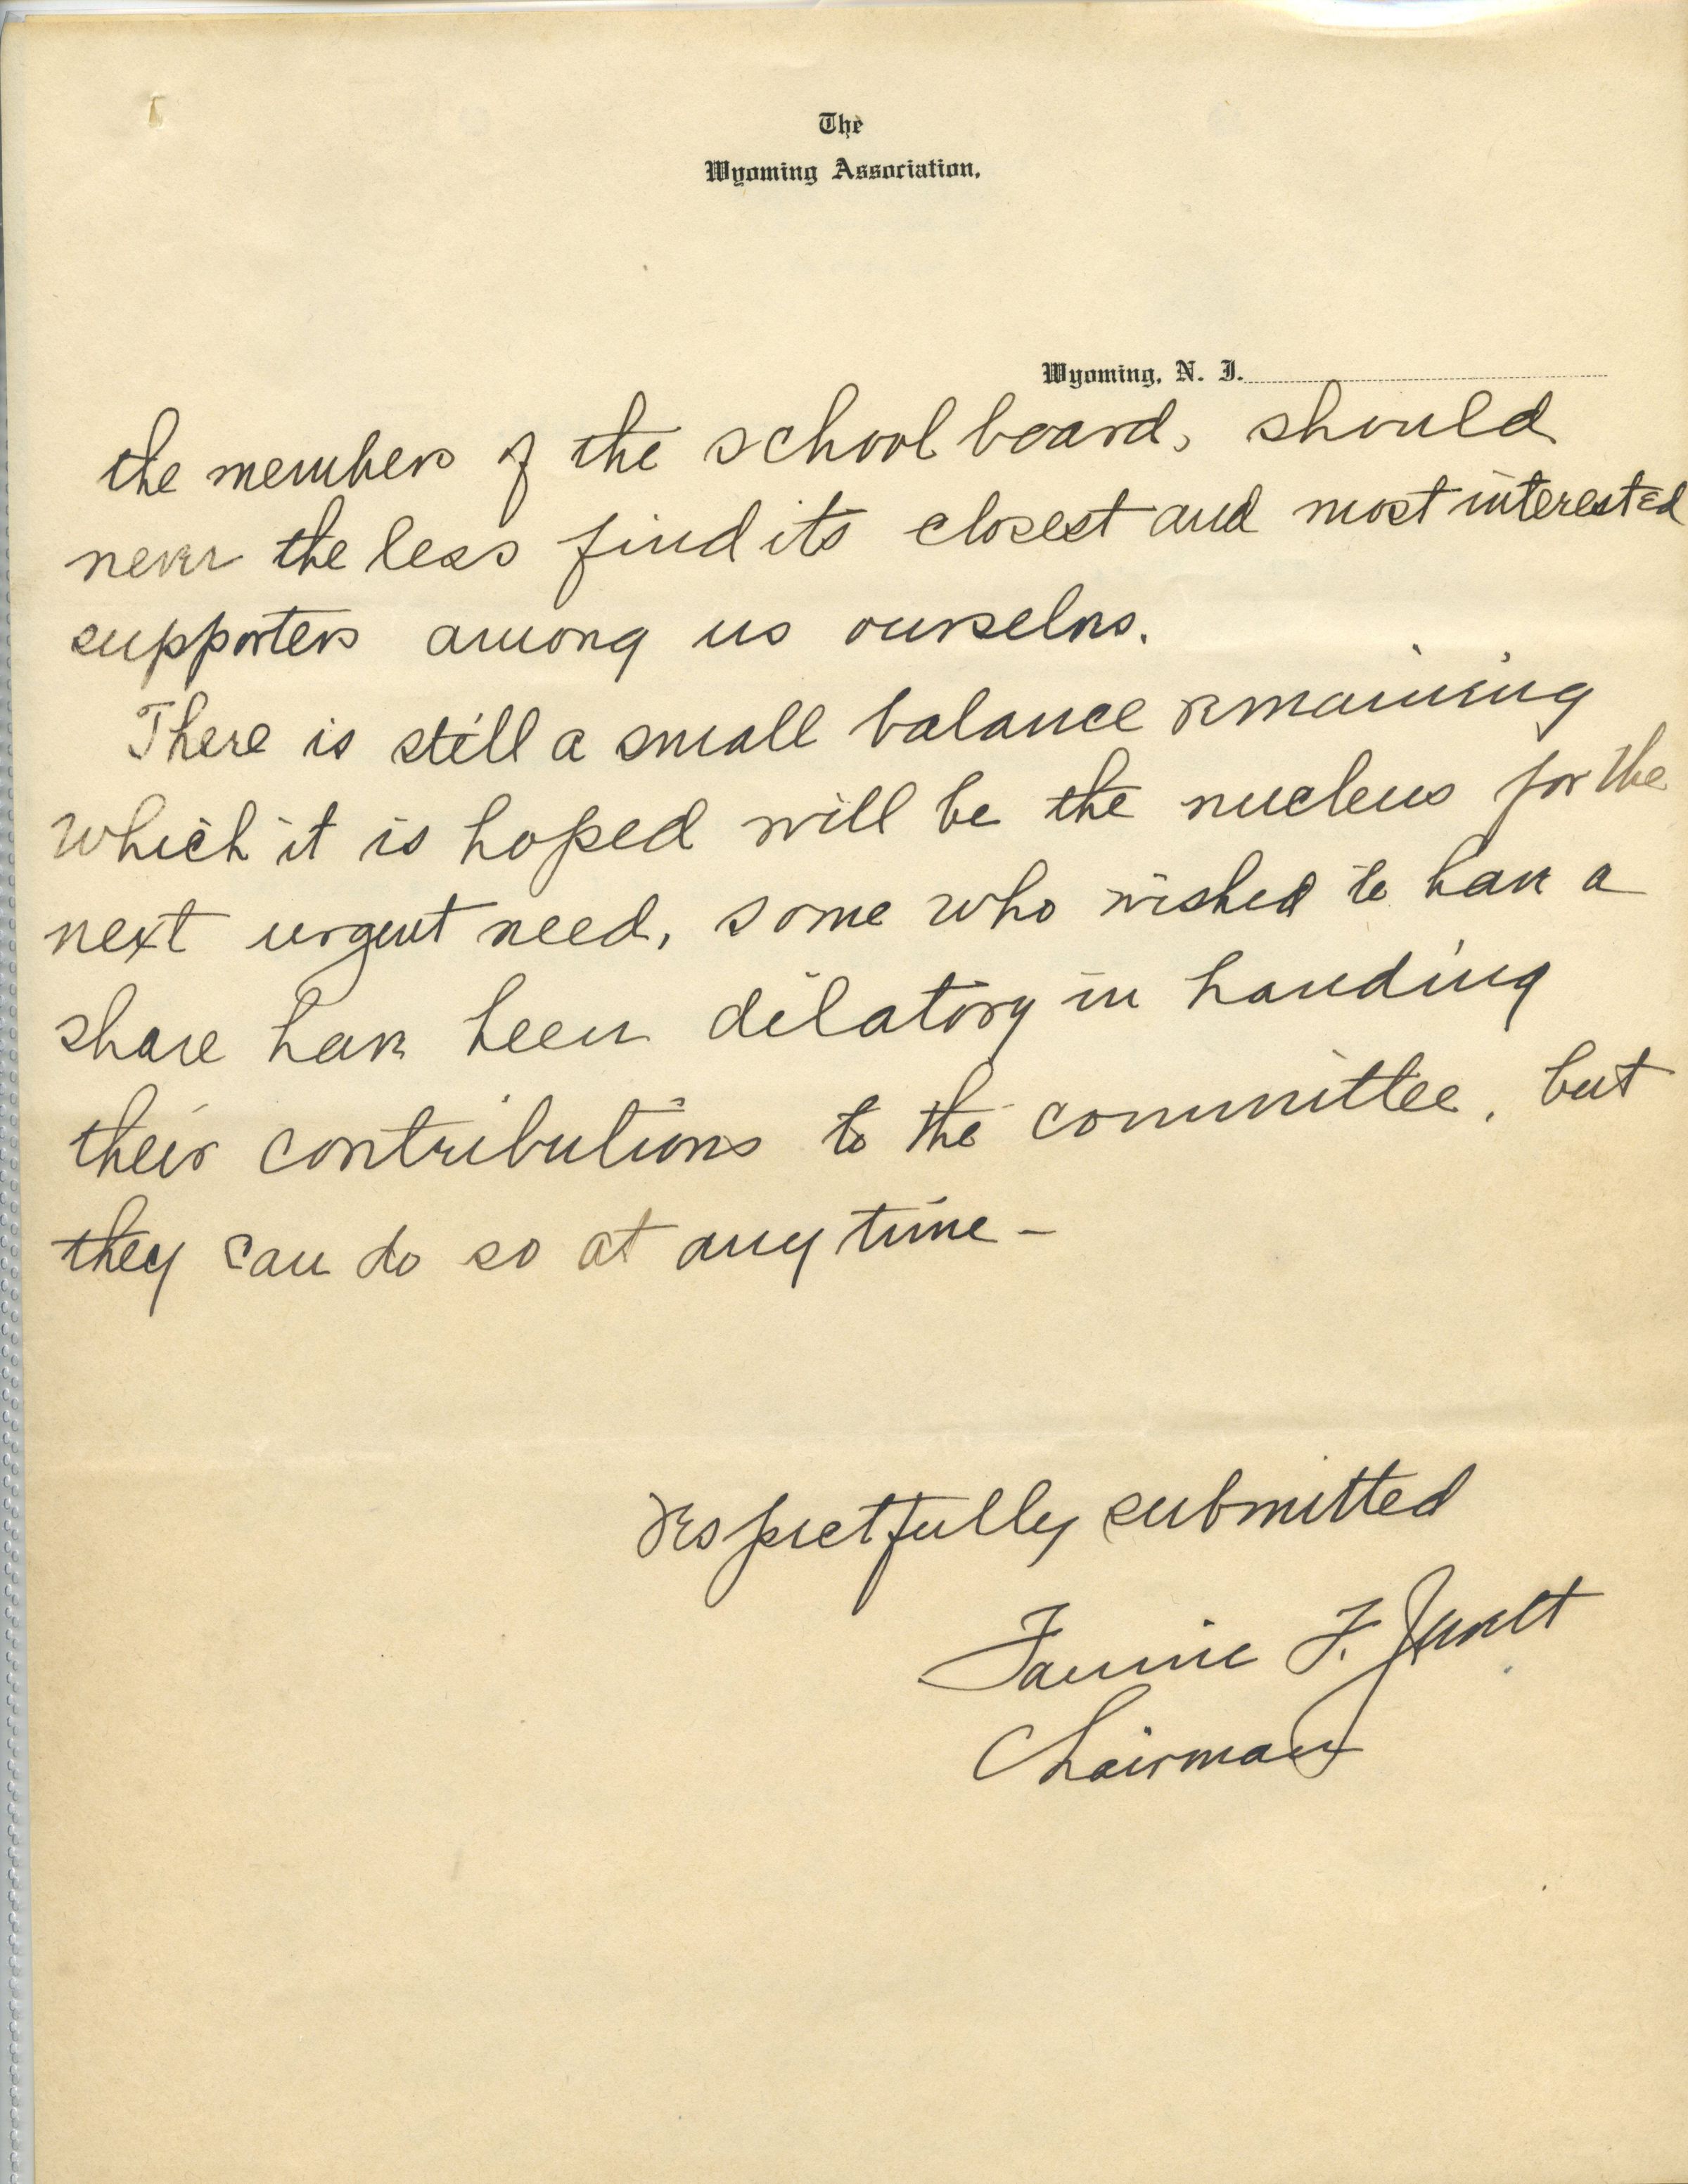 The
Wyoming Association.
Wyoming, N. J.
the members of the school board, should
never the less find its closest and most interested
supporters among us ourselves.
There is still a small balance remaining
which it is hoped will be the nucleus for the
next urgent need, some who wished to have a
share have been dilatory in handing
their contributions to the committee, but
they can do so at any time -
respectfully submitted
Fannie F.
Chairman